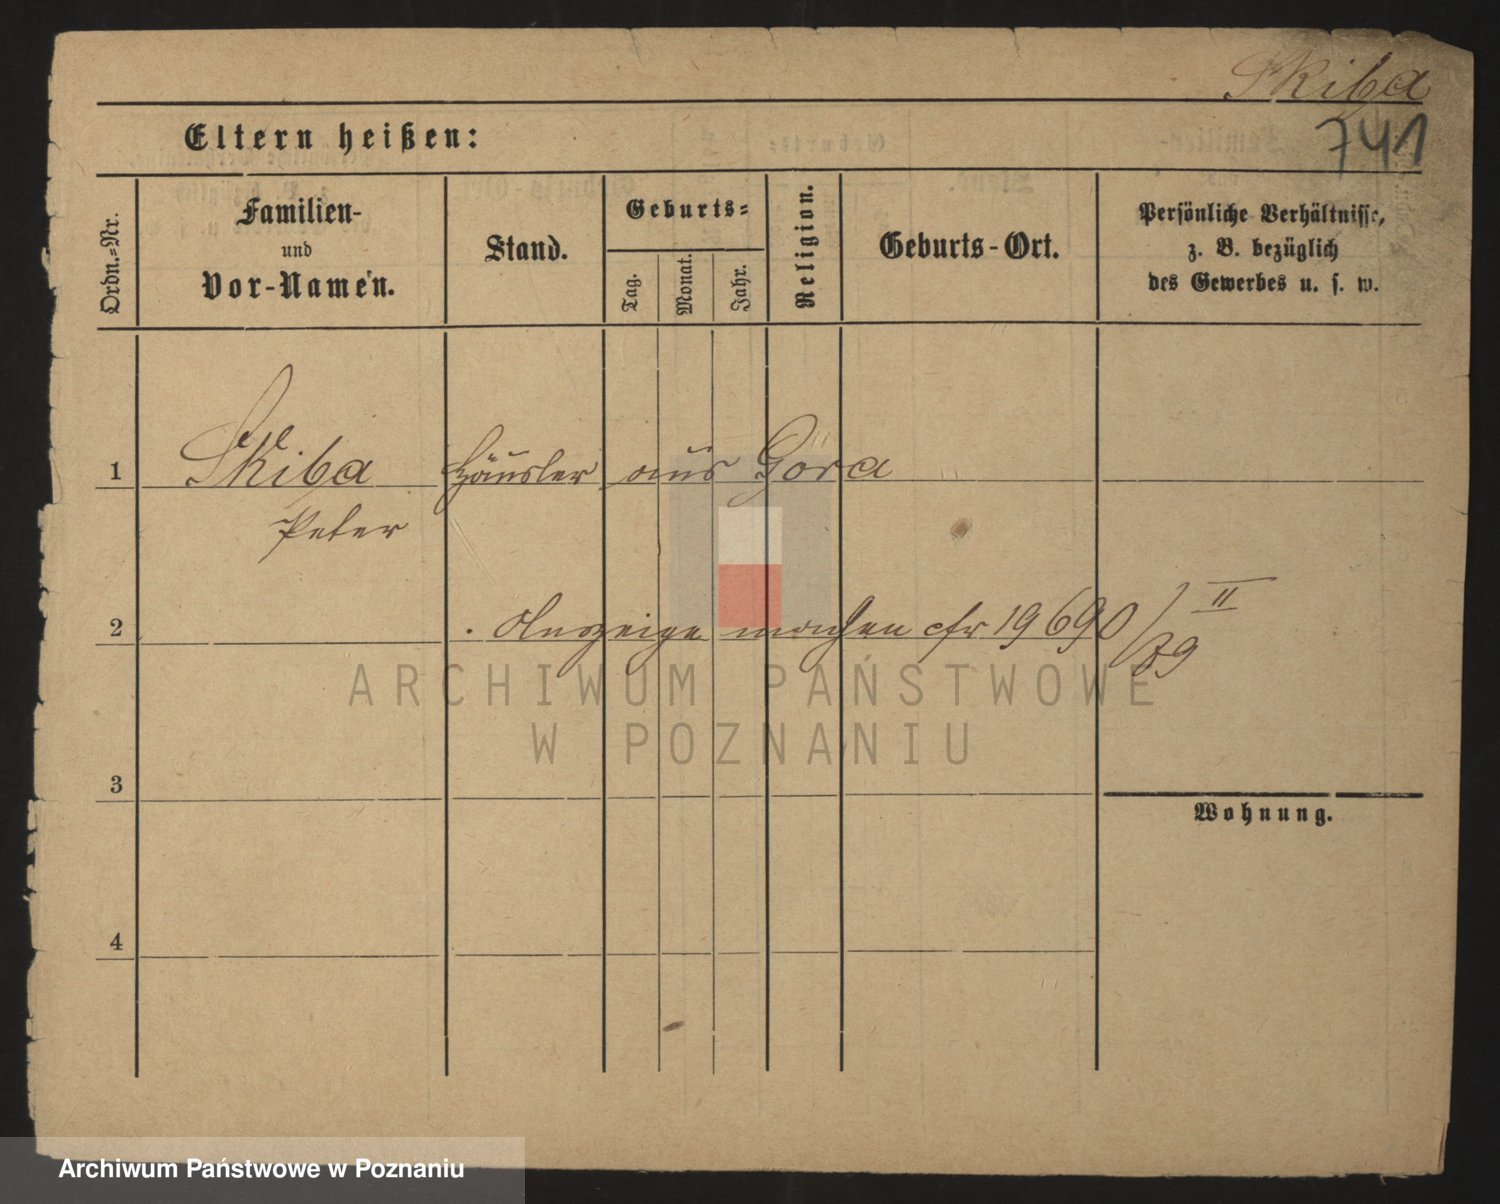 Skiba
741
Eltern heißen:
Ordn.-Nr.
Familien-
und
Vor-Namen.
Stand.
Geburts-
Tag.
Monat.
Jahr.
Religion.
Geburts-Ort.
Persönliche Verhältnisse,
z. B. bezüglich
des Gewerbes u. s. w.
1
Skiba Häusler aus Góra
Peter
2
Anzeige machen cfr 19690/II 89
ARCHIWUM PAŃSTWOWE
W POZNANIU
3
Wohnung.
4
Archiwum Państwowe w Poznaniu